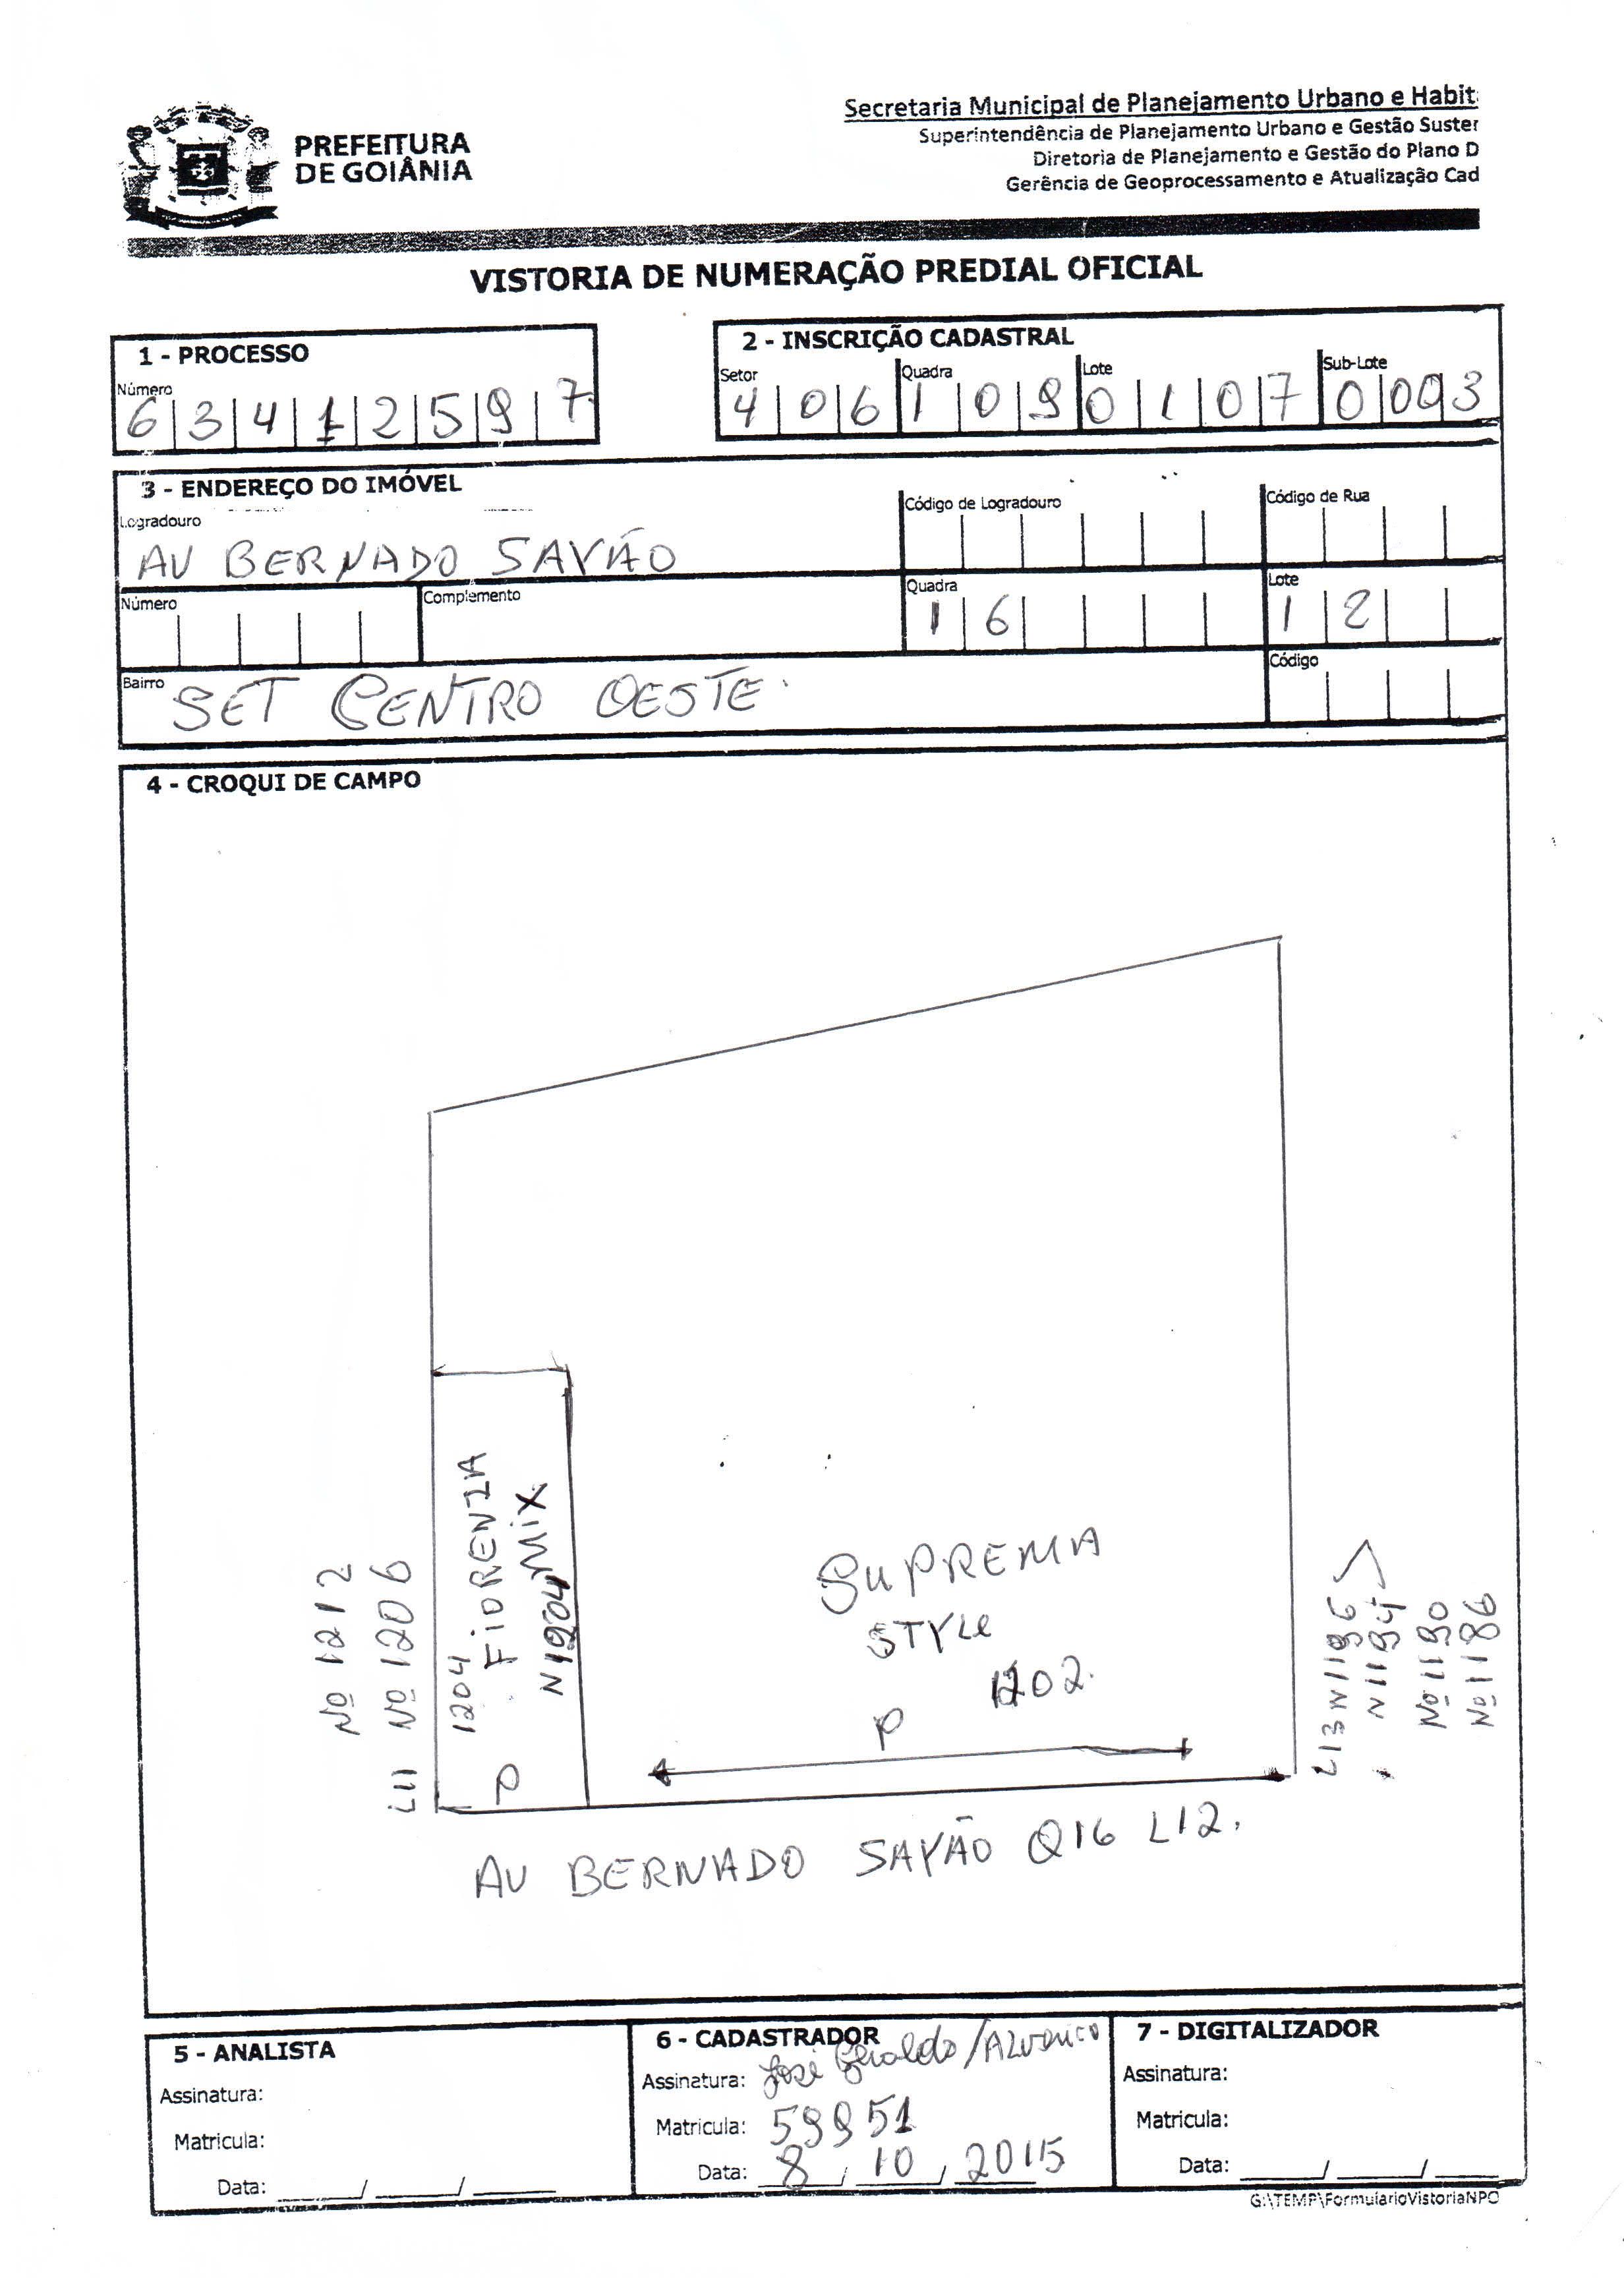 PREFEITURA
DE GOIÂNIA
Secretaria Municipal de Planejamento Urbano e Habit
Superintendência de Planejamento Urbano e Gestão Suster
Diretoria de Planejamento e Gestão do Plano D
Gerência de Geoprocessamento e Atualização Cad
VISTORIA DE NUMERAÇÃO PREDIAL OFICIAL
1 - PROCESSO
Número
6 3 4 1 2 5 9 7
2 - INSCRIÇÃO CADASTRAL
Setor Quadra Lote Sub-Lote
4 0 6 1 0 9 0 1 0 7 0 0 0 3
3 - ENDEREÇO DO IMÓVEL
Logradouro Código de Logradouro Código de Rua
AV BERNADO SAYÃO
Número Complemento Quadra Lote
1 6 1 2
Bairro SET CENTRO OESTE Código
4 - CROQUI DE CAMPO
Nº 1212
L11 Nº 1206
1204
FIORENZA
MIX
N 1204
P
SUPREMA
STYLE
1202.
P
L13 N 1196
N 1194
Nº 1190
Nº 1186
AV BERNADO SAYÃO Q16 L12.
5 - ANALISTA
Assinatura:
Matricula:
Data: ____/____/____
6 - CADASTRADOR
Assinatura: José Geraldo /
Matricula: 59951
Data: 8 / 10 / 2015
7 - DIGITALIZADOR
Assinatura:
Matricula:
Data: ____/____/____
G:\TEMP\FormularioVistoriaNPO